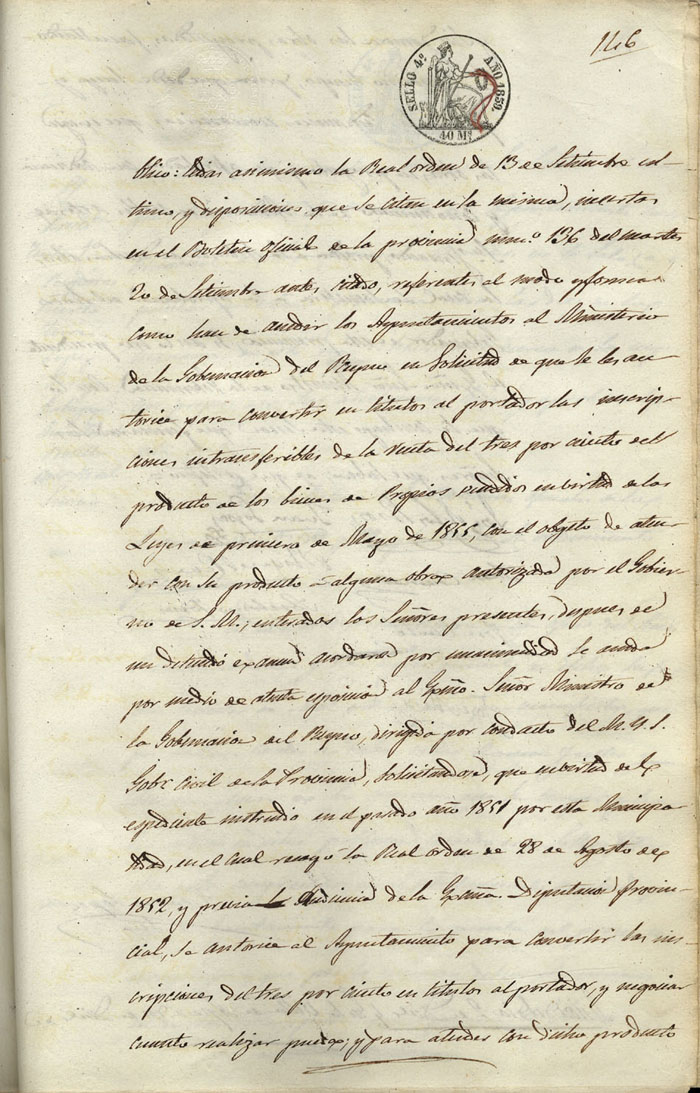 146
SELLO 4º AÑO 1859.
40 Mˢ
blico: leidas asimismo la Real orden de 13 de Setiembre ul-
timo, y disposiciones que se citan en la misma, insertas
en el Boletin oficial de la provincia num.º 136 del martes
20 de Setiembre antes citado, referentes al modo y forma
como han de acudir los Ayuntamientos al Ministerio
de la Gobernacion del Reyno en solicitud de que se les au-
torice para convertir en titulos al portador las inscrip-
ciones intransferibles de la renta del tres por ciento del
producto de los bienes de Propios vendidos en birtud de las
Leyes de primero de Mayo de 1855, con el obgeto de aten-
der con su producto á alguna obra autorizada por el Gobier-
no de S. M.; enterados los Señores presentes, despues de
un detenido examen acordaron por unanimidad se acuda
por medio de atenta esposicion al Exmo. Señor Ministro de
la Gobernacion del Reyno, dirigida por conducto del M. Y. S.
Gobr. Civil de la Provincia, solicitandose, que en birtud del
espediente instruido en el pasado año 1851 por esta Municipa-
lidad, en el cual recayó la Real orden de 28 de Agosto de
1852, y previa la Audiencia de la Exma. Diputacion Provin-
cial, se autorice al Ayuntamiento para convertir las ins-
cripciones del tres por ciento en titulos al portador, y negociar
cuanto realizar pueda; y para atender con dicho producto